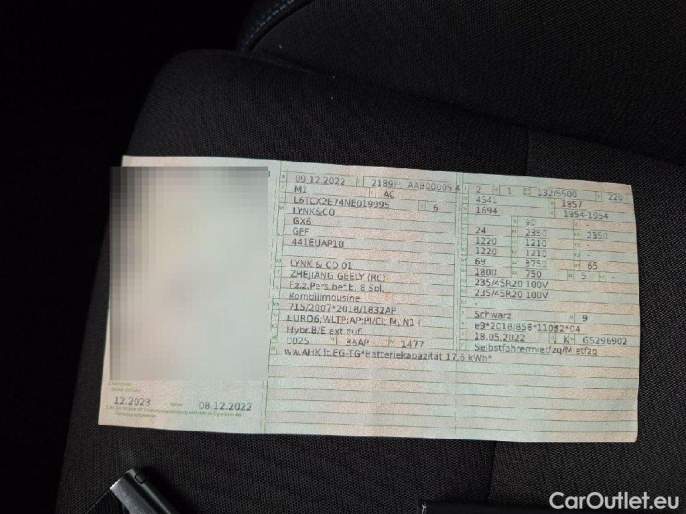 09.12.2022 2189 AAB00005 4 2 1 132/5500 220
M1 AC 4541 1857
L6TCX2E74NE019995 6 1694 1954-1954
LYNK&CO 90
GX6 24 2350 2350
GFF 1220 1210
441EUAP10 1220 1210
69 3750 65
LYNK & CO 01 1800 750 5
ZHEJIANG GEELY (RC) 235/45R20 100V
Fz.z.Pers.bef.b. 8 Spl. 235/45R20 100V
Kombilimousine
715/2007*2018/1832AP Schwarz 9
EURO6;WLTP;AP;PI/CI; M, N1 I e9*2018/858*11082*04
Hybr.B/E ext.aufl. 18.05.2022 K G5296902
0025 36AP 1477 Selbstfahrermietfzg/Mietfzg
ww.AHK lt.EG-TG*Batteriekapazität 17,6 kWh*
12.2023 08.12.2022
CarOutlet.eu